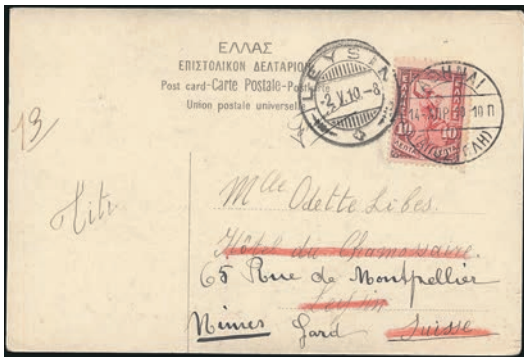 ΕΛΛΑΣ
ΕΠΙΣΤΟΛΙΚΟΝ ΔΕΛΤΑΡΙΟΝ
Post card-Carte Postale-Postkarte
Union postale universelle
LEYSIN
-2.V.10.-8
ΑΘΗΝΑΙ
10 10
13
Titi
Mlle Odette Libes.
Hôtel du Chamossaire.
65 Rue de Montpellier
Leysin
Nimes Gard Suisse